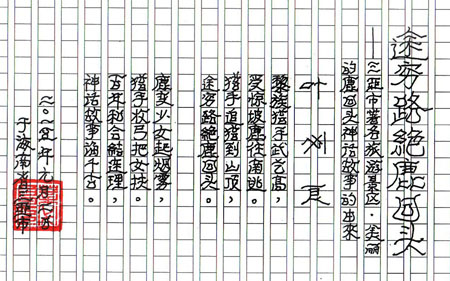 途穷路絕鹿回头
——三亚市著名旅游景区·美丽
的鹿回头神话故事的由來
叶 夏
黎族猎手武艺高，
受惊坡鹿往南逃。
猎手追猎到山顶，
途穷路絕鹿回头。
鹿变少女起烟雾，
猎手收弓把女扶。
百年和合结连理，
神话故事誦千古。
于海南省三亚市